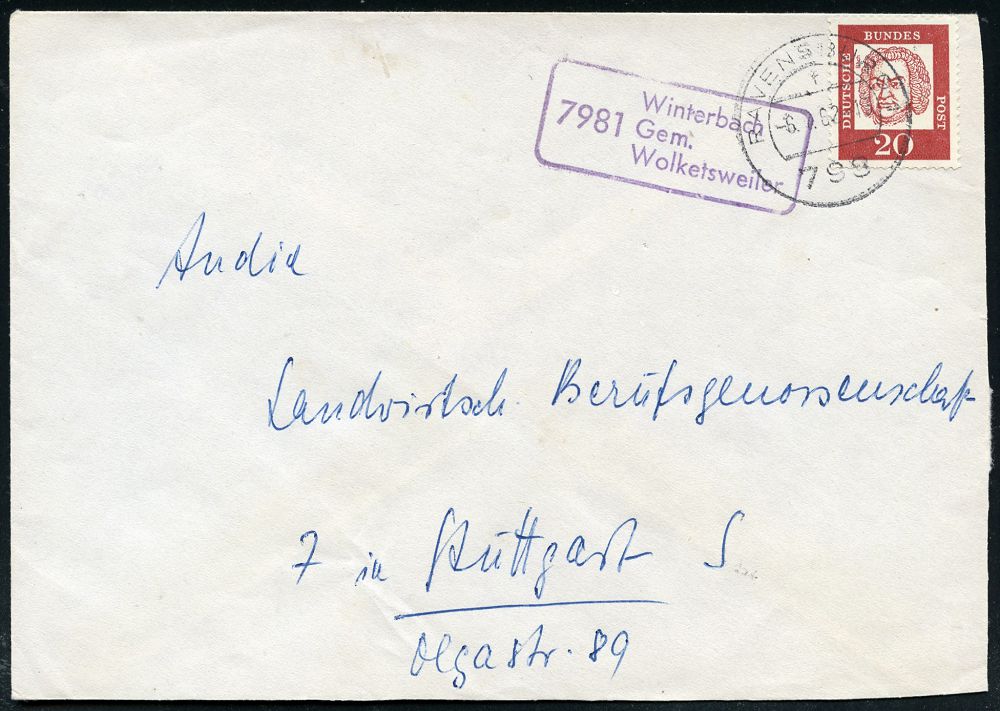 Winterbach
7981 Gem.
Wolketsweiler
RAVENSBURG
798
DEUTSCHE BUNDES POST
20
An die
Landwirtsch. Berufsgenossenschaft
7 in Stuttgart S
Olgastr. 89